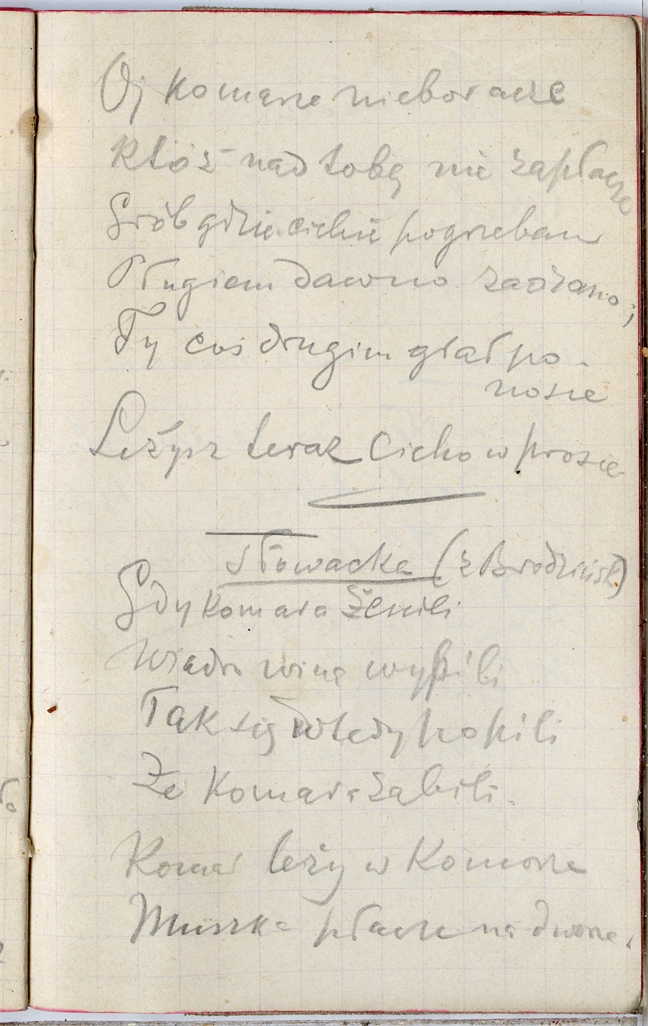 Oj komarze nieboracze
Któż nad tobą nie zapłacze
Grób gdzie cichie pogrzebano
Pługiem dawno zaorano;
Ty coś drugim grał po-
nosie
Leżysz teraz cicho w prosie
Słowacka (z Brodzińsk)
Gdy komara żenili
Wiadro wina wypili
Tak się wtedy popili
Że Komara zabili.
Komar leży w Komorze
Muszka płacze na dworze,